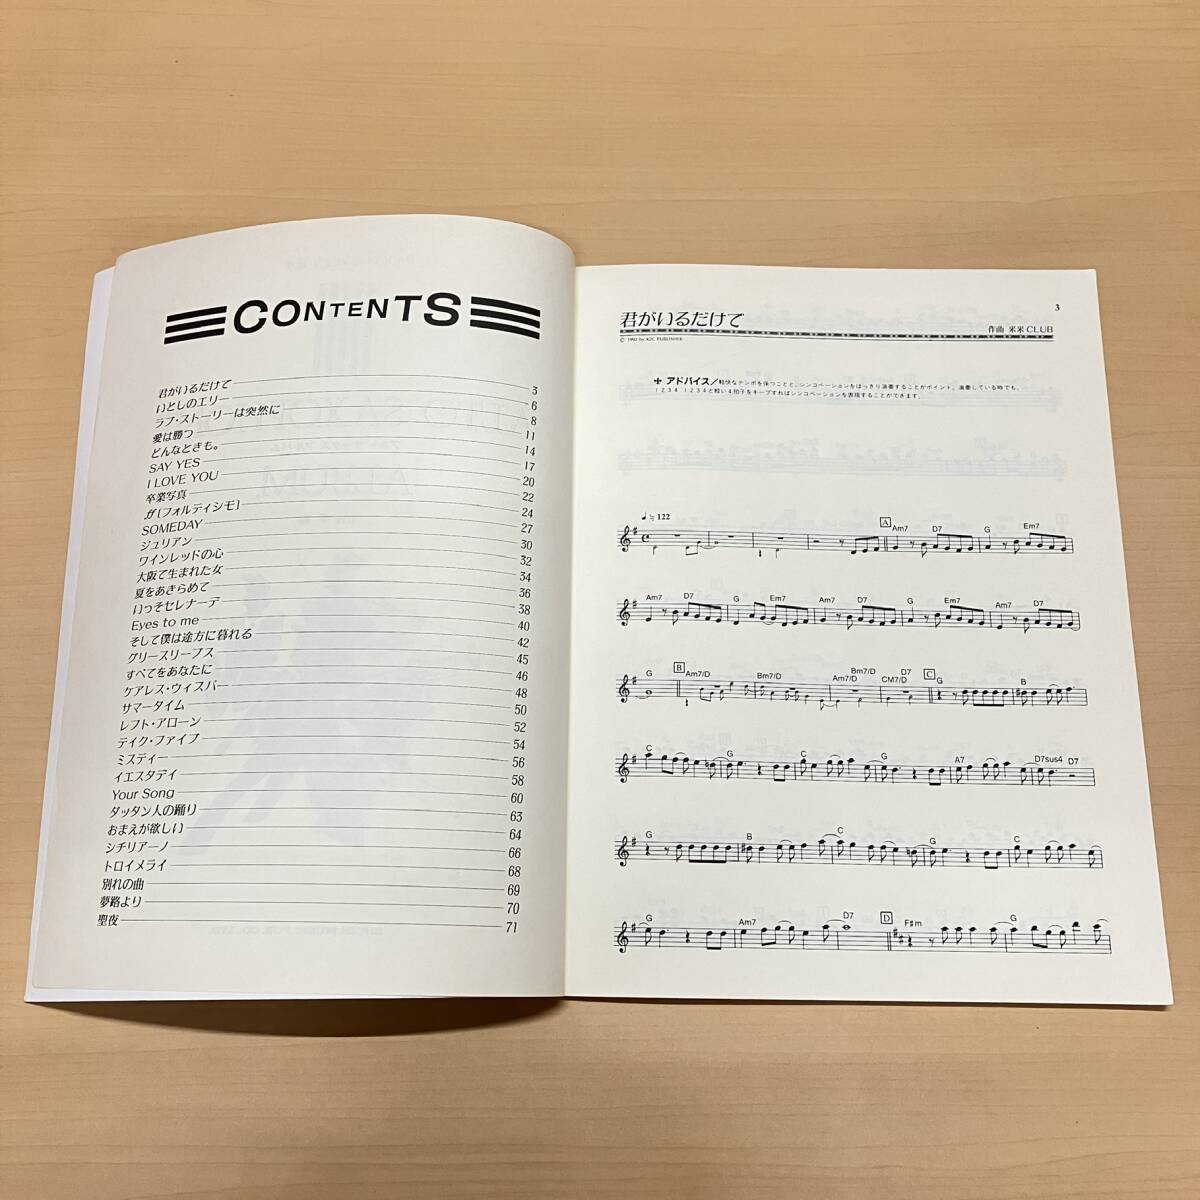 CONTENTS
君がいるだけで 3
いとしのエリー 6
ラブ・ストーリーは突然に 8
愛は勝つ 11
どんなときも。 14
SAY YES 17
I LOVE YOU 20
卒業写真 22
ff〔フォルティシモ〕 24
SOMEDAY 27
ジュリアン 30
ワインレッドの心 32
大阪で生まれた女 34
夏をあきらめて 36
いっそセレナーデ 38
Eyes to me 40
そして僕は途方に暮れる 42
グリースリーブス 45
すべてをあなたに 46
ケアレス・ウィスパー 48
サマータイム 50
レフト・アローン 52
テイク・ファイブ 54
ミスティー 56
イエスタデイ 58
Your Song 60
ダッタン人の踊り 63
おまえが欲しい 64
シチリアーノ 66
トロイメライ 68
別れの曲 69
夢路より 70
聖夜 71
3
君がいるだけで
作曲 米米CLUB
© 1992 by K2C PUBLISHER
アドバイス/軽快なテンポを保つことと、シンコペーションをはっきり演奏することがポイント。演奏している時でも、
1 2 3 4 1 2 3 4と軽い4拍子をキープすればシンコペーションを表現することができます。
♩≒122
A Am7 D7 G Em7
Am7 D7 G Em7 Am7 D7 G Em7 Am7 D7
G B Am7/D Bm7/D Am7/D Bm7/D CM7/D D7 C G B
C G C G A7 D7sus4 D7
G B C G C
G Am7 D7 D F#m A G